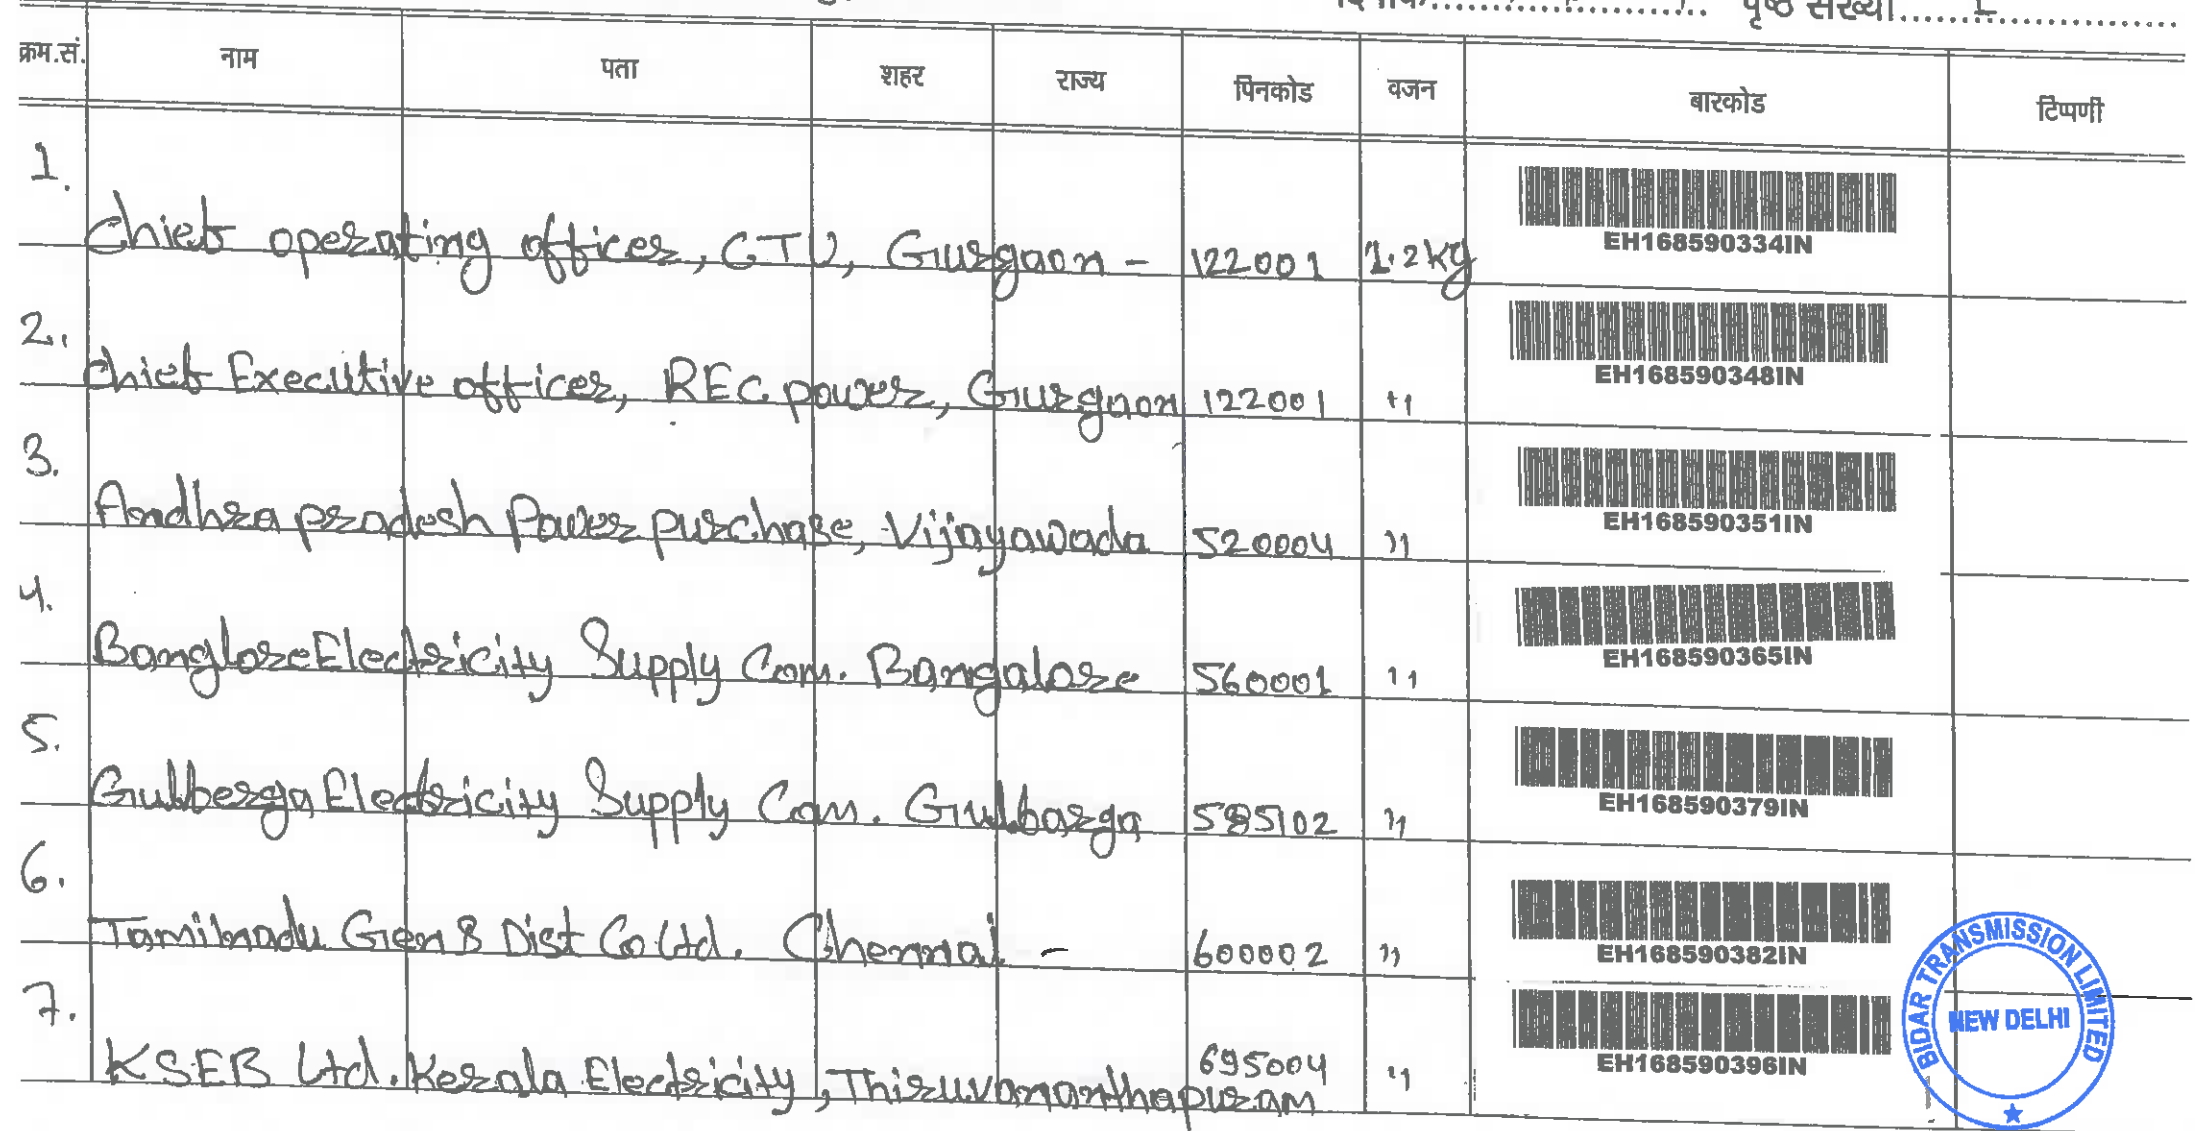 दिनांक.................... पृष्ठ संख्या.....1...............
क्रम.सं. नाम पता शहर राज्य पिनकोड वजन बारकोड टिप्पणी
1. Chief operating officer, CTU, Gurgaon - 122001 1.2kg
EH168590334IN
2. Chief Executive officer, REC power, Gurgaon 122001 "
EH168590348IN
3. Andhra pradesh Power purchase, Vijayawada 520004 "
EH168590351IN
4. Banglore Electricity Supply Com. Bangalore 560001 "
EH168590365IN
5. Gulberga Electricity Supply Com. Gulbarga 585102 "
EH168590379IN
6. Tamilnadu Gen & Dist Co Ltd. Chennai - 600002 "
EH168590382IN
7. KSEB Ltd. Kerala Electricity, Thiruvananthapuram 695004 "
EH168590396IN
BIDAR TRANSMISSION LIMITED
NEW DELHI